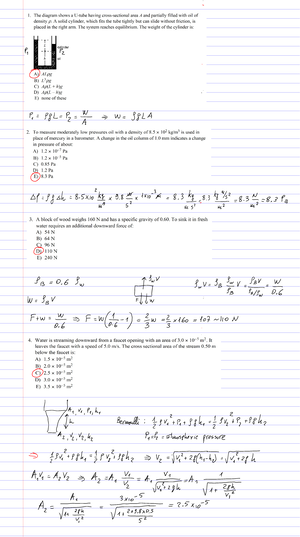 1. The diagram shows a U-tube having cross-sectional area A and partially filled with oil of
density ρ. A solid cylinder, which fits the tube tightly but can slide without friction, is
placed in the right arm. The system reaches equilibrium. The weight of the cylinder is:
P₁ P₂
A) ALρg
B) L³ρg
C) Aρ(L + ℓ)g
D) Aρ(L − ℓ)g
E) none of these
P₁ = ρgL = P₂ = W/A ⇒ W = ρgLA
2. To measure moderately low pressures oil with a density of 8.5 × 10² kg/m³ is used in
place of mercury in a barometer. A change in the height of the oil column of 1.0 mm indicates a change
in pressure of about:
A) 1.2 × 10⁻⁷ Pa
B) 1.2 × 10⁻⁵ Pa
C) 0.85 Pa
D) 1.2 Pa
E) 8.3 Pa
3. A block of wood weighs 160 N and has a specific gravity of 0.60. To sink it in fresh
water requires an additional downward force of:
A) 54 N
B) 64 N
C) 96 N
D) 110 N
E) 240 N
ρB = 0.6 ρw
W = ρB V
F + W = W/0.6 ⇒ F = W(1/0.6 − 1) = 2/3 W = 2/3 × 160 = 107 ~ 110 N
4. Water is streaming downward from a faucet opening with an area of 3.0 × 10⁻⁵ m². It
leaves the faucet with a speed of 5.0 m/s. The cross sectional area of the stream 0.50 m
below the faucet is:
A) 1.5 × 10⁻⁵ m²
B) 2.0 × 10⁻⁵ m²
C) 2.5 × 10⁻⁵ m²
D) 3.0 × 10⁻⁵ m²
E) 3.5 × 10⁻⁵ m²
A₁, V₁, P₁, h₁
h
A₂, V₂, P₂, h₂
Bernoulli: ½ρV₁² + P₁ + ρgh₁ = ½ρV₂² + P₂ + ρgh₂
P₁ = P₂ = atmospheric pressure
⇒ ½ρV₁² + ρgh₁ = ½ρV₂² + ρgh₂ ⇒ V₂ = √(V₁² + 2g(h₁−h₂)) = √(V₁² + 2gh)
A₁V₁ = A₂V₂ ⇒ A₂ = A₁ V₁/V₂ = A₁ V₁/√(V₁² + 2gh) = A₁ 1/√(1 + 2gh/V₁²)
A₂ = A₁/√(1 + 2gh/V₁²) = 3×10⁻⁵/√(1 + 2×9.8×0.5/5²) = 2.5×10⁻⁵